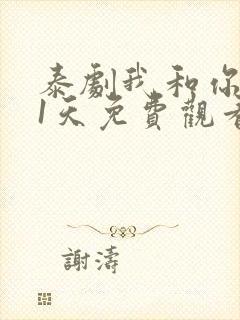 泰劇我和你
1天免費觀看
謝濤